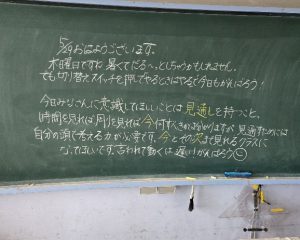 5/29 おはようございます。
木曜日ですね 暑くてだるくなってしまうかもしれません。
でも切り替えスイッチを押してやるときはやるで今日もがんばろう!
今日みなさんに意識してほしいことは見通しを持つこと。
時間を見れば周りを見れば今何すべきかは分かりますが、見通すためには
自分の頭で考える力が必要です。今とその次まで見れるクラスに
なってほしいです。言われて動くは遅い!がんばろう